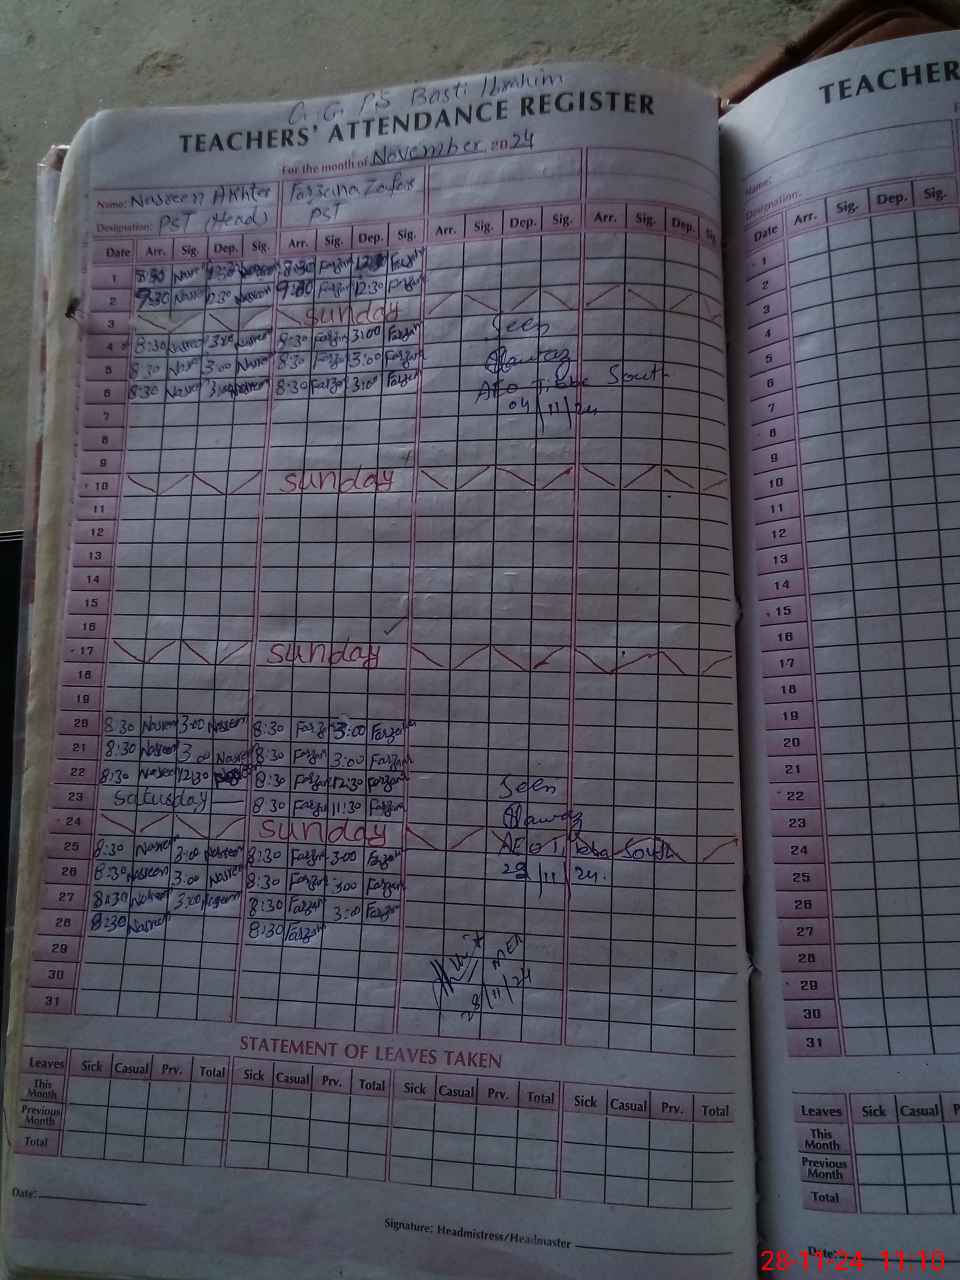 G. G. P.S Basti Ibrahim
TEACHERS' ATTENDANCE REGISTER
For the month of November 2024
Name: Nasreen Akhter Farzana Zafar
Designation: PST (Head) PST
Date Arr. Sig. Dep. Sig. Arr. Sig. Dep. Sig. Arr. Sig. Dep. Sig. Arr. Sig. Dep. Sig.
1 8:30 Nasre 12:30 8:30 Farzan 12:30 Farzan
2 9:30 Nasre 12:30 Nasreen 9:30 Farzan 12:30 Farzan
3 Sunday
4 8:30 Nasree 3:00 Nasree 8:30 Farzan 3:00 Farzan Seen
5 8:30 Nasre 3:00 Nasre 8:30 Farzan 3:00 Farzan
6 8:30 Nasre 3:00 Nasreen 8:30 Farzan 3:00 Farzan AEO Tibba South
7 04/11/24
8
9
10 Sunday
11
12
13
14
15
16
17 Sunday
18
19
20 8:30 Nasreen 3:00 Nasreen 8:30 Farzan 3:00 Farzan
21 8:30 Nasreen 3:00 Nasreen 8:30 Farzan 3:00 Farzan
22 8:30 Nasreen 12:30 8:30 Farzan 12:30 Farzan Seen
23 Satusday 8:30 Farzan 11:30 Farzan
24 Sunday
25 8:30 Nasreen 3:00 Nasreen 8:30 Farzan 3:00 Farzan AEO Tibba South
26 8:30 Nasreen 3:00 Nasreen 8:30 Farzan 3:00 Farzan 23/11/24.
27 8:30 Nasreen 3:00 8:30 Farzan 3:00 Farzan
28 8:30 Nasreen 8:30 Farzan
29 MEA
30 28/11/24
31
STATEMENT OF LEAVES TAKEN
Leaves Sick Casual Prv. Total Sick Casual Prv. Total Sick Casual Prv. Total Sick Casual Prv. Total
This Month
Previous Month
Total
Date:
Signature: Headmistress/Headmaster
TEACHER
Name:
Designation:
Date Arr. Sig. Dep. Sig.
1
2
3
4
5
6
7
8
9
10
11
12
13
14
15
16
17
18
19
20
21
22
23
24
25
26
27
28
29
30
31
Leaves Sick Casual P
This Month
Previous Month
Total
Date:
28-11-24 11:10